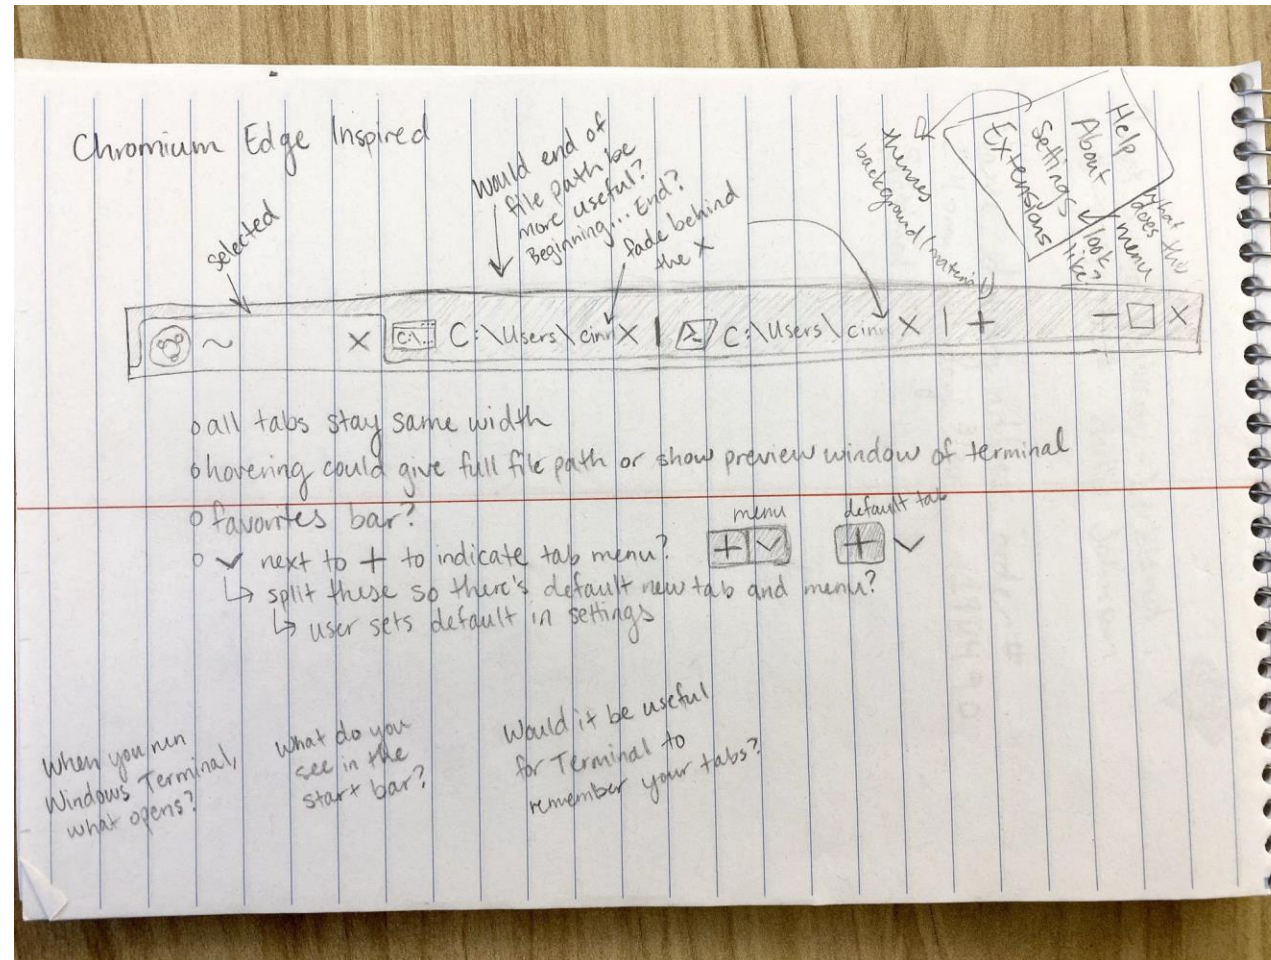 Chromium Edge Inspired
selected
Would end of
file path be
more useful?
Beginning... End?
fade behind
the X
themes
background (material)
Help
About
Settings
Extensions
what does this
menu
look
like?
~ X C:\.. C:\Users\cinn X | >_ C:\Users\cinn X | + — □ X
all tabs stay same width
hovering could give full file path or show preview window of terminal
favorites bar?
✓ next to + to indicate tab menu?
↳ split these so there's default new tab and menu?
↳ user sets default in settings
menu
default tab
When you run
Windows Terminal,
what opens?
What do you
see in the
start bar?
Would it be useful
for Terminal to
remember your tabs?